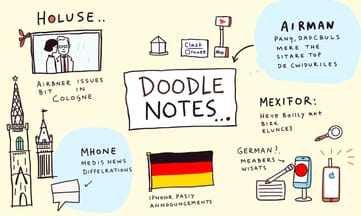 HOLUSE..
AIRBNER ISSUES
BIT IN
COLOGNE
DOODLE
NOTES...
AIRMAN
PANY, DADCBULS
MERE THE
SITARE TOP
DE CWIDURILES
MEXIFOR:
HEVE BOILLY ANT
BIZE
ELUNCES
MHONE
MEDIS NEWS
DIFFELRATIONS
IPHOUR PASIY
ANNOUNCEMENTS
GERMAN?.
MEABERS
WISATS